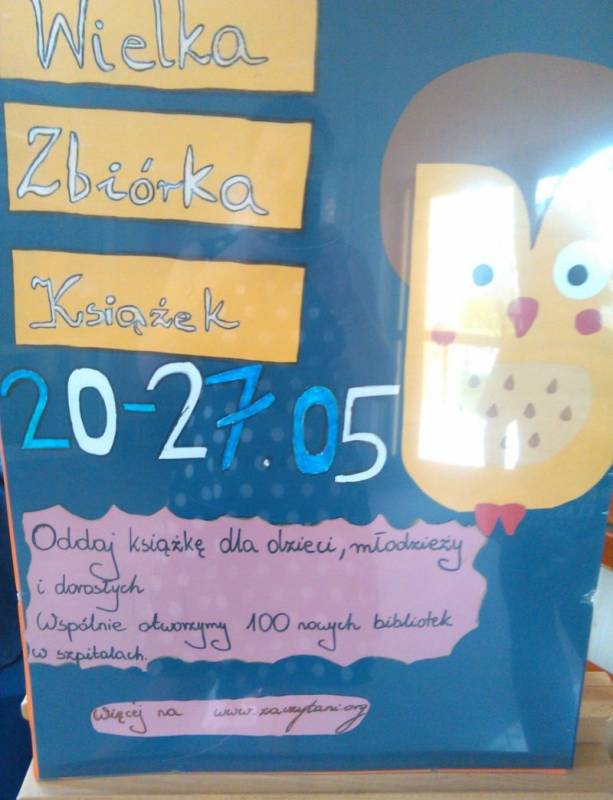 Wielka
Zbiórka
Książek
20-27.05
Oddaj książkę dla dzieci, młodzieży
i dorosłych
Wspólnie otworzymy 100 nowych bibliotek
w szpitalach.
Więcej na www.zaczytani.org